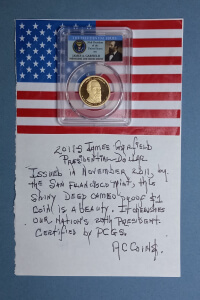 JAMES A. GARFIELD
2011-S JAMES GARFIELD
PRESIDENTIAL DOLLAR
ISSUED IN NOVEMBER 2011, BY
THE SAN FRANCISCO MINT, THIS
SHINY DEEP CAMEO PROOF $1
COIN IS A BEAUTY. IT
OUR NATION'S 20TH PRESIDENT.
CERTIFIED BY PCGS.
AC COINS